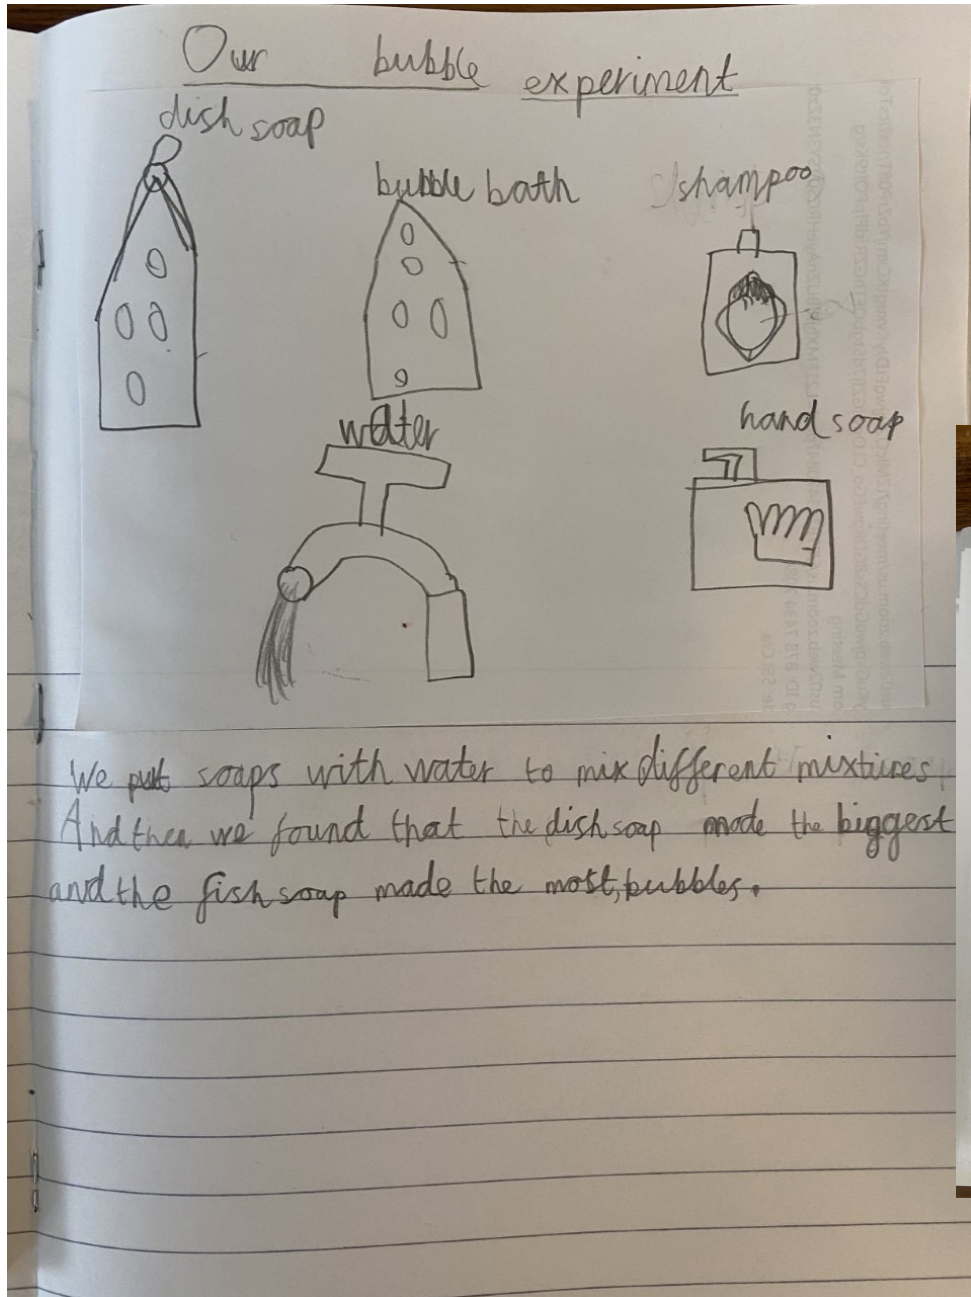 Our bubble experiment
dish soap
bubble bath
shampoo
water
hand soap
We put soaps with water to mix different mixtures.
And then we found that the dish soap made the biggest
and the fish soap made the most bubbles.